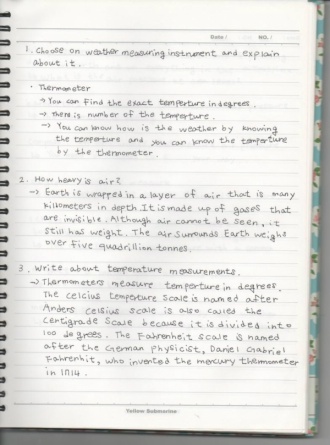 Date / NO. /
1. Choose on weather measuring instrument and explain
about it.
· Thermometer
→ You can find the exact temperture in degrees.
→ there is number of the temperture.
→ You can know how is the weather by knowing
the temperture and you can know the temperture
by the thermometer.
2. How heavy is air?
→ Earth is wrapped in a layer of air that is many
killometers in depth. It is made up of gases that
are invisible. Although air cannot be seen, it
still has weight. The air surrounds Earth weighs
over five quadrillion tonnes.
3. Write about temperature measurements.
→ Thermometers measure temperture in degrees.
The celcius temperture scale is named after
Anders Celsius scale is also called the
Centigrade scale because it is divided into
100 degrees. The Fahrenheit scale is named
after the German physicist, Daniel Gabriel
Fahrenheit, who invented the mercury thermometer
in 1714.
Yellow Submarine